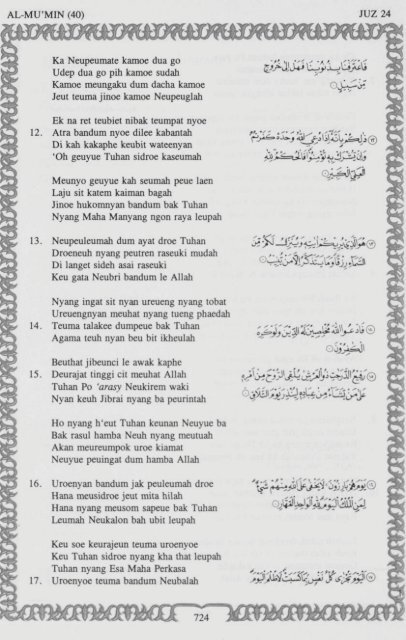 AL-MU'MIN (40)
JUZ 24
Ka Neupeumate kamoe dua go
Udep dua go pih kamoe sudah
Kamoe meungaku dum dacha kamoe
Jeut teuma jinoe kamoe Neupeuglah
فَاعْتَرَفْنَا بِذُنُوبِنَا فَهَلْ إِلَىٰ خُرُوجٍ
مِّن سَبِيلٍ
Ek na ret teubiet nibak teumpat nyoe
12. Atra bandum nyoe dilee kabantah
Di kah kakaphe keubit wateenyan
'Oh geuyue Tuhan sidroe kaseumah
ذَٰلِكُم بِأَنَّهُ إِذَا دُعِيَ اللَّهُ وَحْدَهُ كَفَرْتُمْ
وَإِن يُشْرَكْ بِهِ تُؤْمِنُوا فَالْحُكْمُ لِلَّهِ
الْعَلِيِّ الْكَبِيرِ
Meunyo geuyue kah seumah peue laen
Laju sit katem kaiman bagah
Jinoe hukomnyan bandum bak Tuhan
Nyang Maha Manyang ngon raya leupah
13. Neupeuleumah dum ayat droe Tuhan
Droeneuh nyang peutren raseuki mudah
Di langet sideh asai raseuki
Keu gata Neubri bandum le Allah
هُوَ الَّذِي يُرِيكُمْ آيَاتِهِ وَيُنَزِّلُ لَكُم مِّنَ
السَّمَاءِ رِزْقًا وَمَا يَتَذَكَّرُ إِلَّا مَن يُنِيبُ
Nyang ingat sit nyan ureueng nyang tobat
Ureuengnyan meuhat nyang tueng phaedah
14. Teuma talakee dumpeue bak Tuhan
Agama teuh nyan beu bit ikheulah
فَادْعُوا اللَّهَ مُخْلِصِينَ لَهُ الدِّينَ وَلَوْ كَرِهَ
الْكَافِرُونَ
Beuthat jibeunci le awak kaphe
15. Deurajat tinggi cit meuhat Allah
Tuhan Po 'arasy Neukirem waki
Nyan keuh Jibrai nyang ba peurintah
رَفِيعُ الدَّرَجَاتِ ذُو الْعَرْشِ يُلْقِي الرُّوحَ مِنْ أَمْرِهِ
عَلَىٰ مَن يَشَاءُ مِنْ عِبَادِهِ لِيُنذِرَ يَوْمَ التَّلَاقِ
Ho nyang h'eut Tuhan keunan Neuyue ba
Bak rasul hamba Neuh nyang meutuah
Akan meureumpok uroe kiamat
Neuyue peuingat dum hamba Allah
16. Uroenyan bandum jak peuleumah droe
Hana meusidroe jeut mita hilah
Hana nyang meusom sapeue bak Tuhan
Leumah Neukalon bah ubit leupah
يَوْمَ هُم بَارِزُونَ لَا يَخْفَىٰ عَلَى اللَّهِ مِنْهُمْ شَيْءٌ
لِّمَنِ الْمُلْكُ الْيَوْمَ لِلَّهِ الْوَاحِدِ الْقَهَّارِ
Keu soe keurajeun teuma uroenyoe
Keu Tuhan sidroe nyang kha that leupah
Tuhan nyang Esa Maha Perkasa
17. Uroenyoe teuma bandum Neubalah
الْيَوْمَ تُجْزَىٰ كُلُّ نَفْسٍ بِمَا كَسَبَتْ لَا ظُلْمَ الْيَوْمَ
724